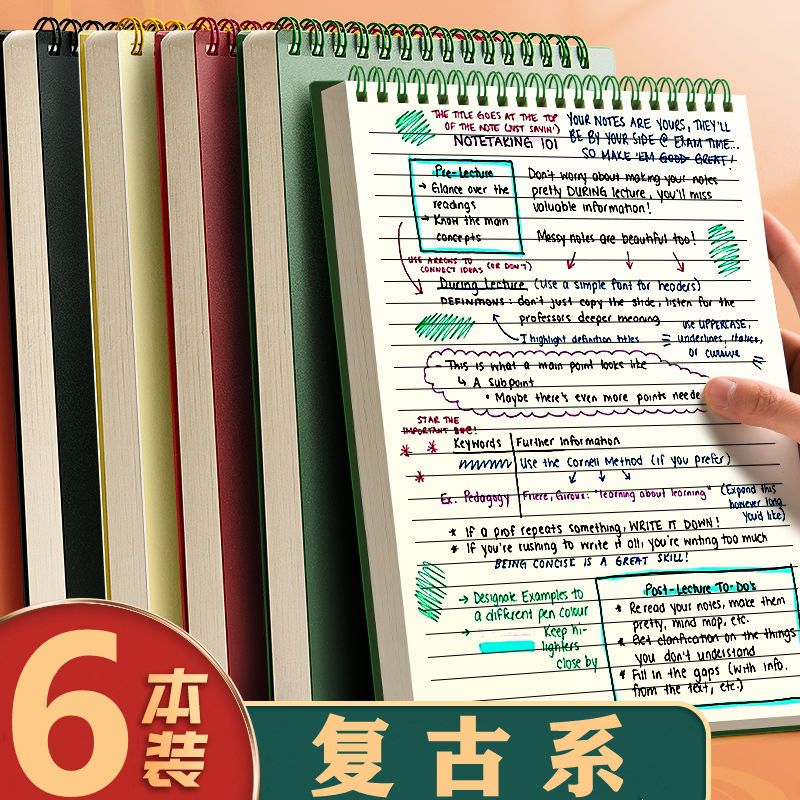 THE TITLE GOES AT THE TOP
OF THE NOTE (JUST SAYIN')
NOTETAKING 101
YOUR NOTES ARE YOURS, THEY'LL
BE BY YOUR SIDE @ EXAM TIME...
SO MAKE 'EM GOOD GREAT!
Pre-Lecture
→ Glance over the
readings
→ Know the main
concepts
Don't worry about making your notes
pretty DURING lecture, you'll miss
valuable information!
Messy notes are beautiful too!
USE ARROWS TO
CONNECT IDEAS (OR DON'T)
During Lecture (Use a simple font for headers)
DEFINITIONS: don't just copy the slide, listen for the
professors deeper meaning
I highlight definition titles
use UPPERCASE,
underlines, italics,
or cursive
- This is what a main point looks like
↳ A Subpoint
• Maybe there's even more points neede
STAR THE
IMPORTANT
Keywords
Further Information
Use the Cornell Method (if you prefer)
Ex. Pedagogy
Friere, Giroux: "learning about learning"
(Expand this
however long
you'd like)
* If a prof repeats something, WRITE IT DOWN!
* If you're rushing to write it all, you're writing too much
BEING CONCISE IS A GREAT SKILL!
→ Designate Examples to
a different pen colour
→ Keep hi-
lighters
close by
Post-Lecture To-Do's
* Reread your notes, make them
pretty, mind map, etc.
* Get clarification on the things
you don't understand
* Fill in the gaps (with info.
from the text, etc.)
6本装
复古系